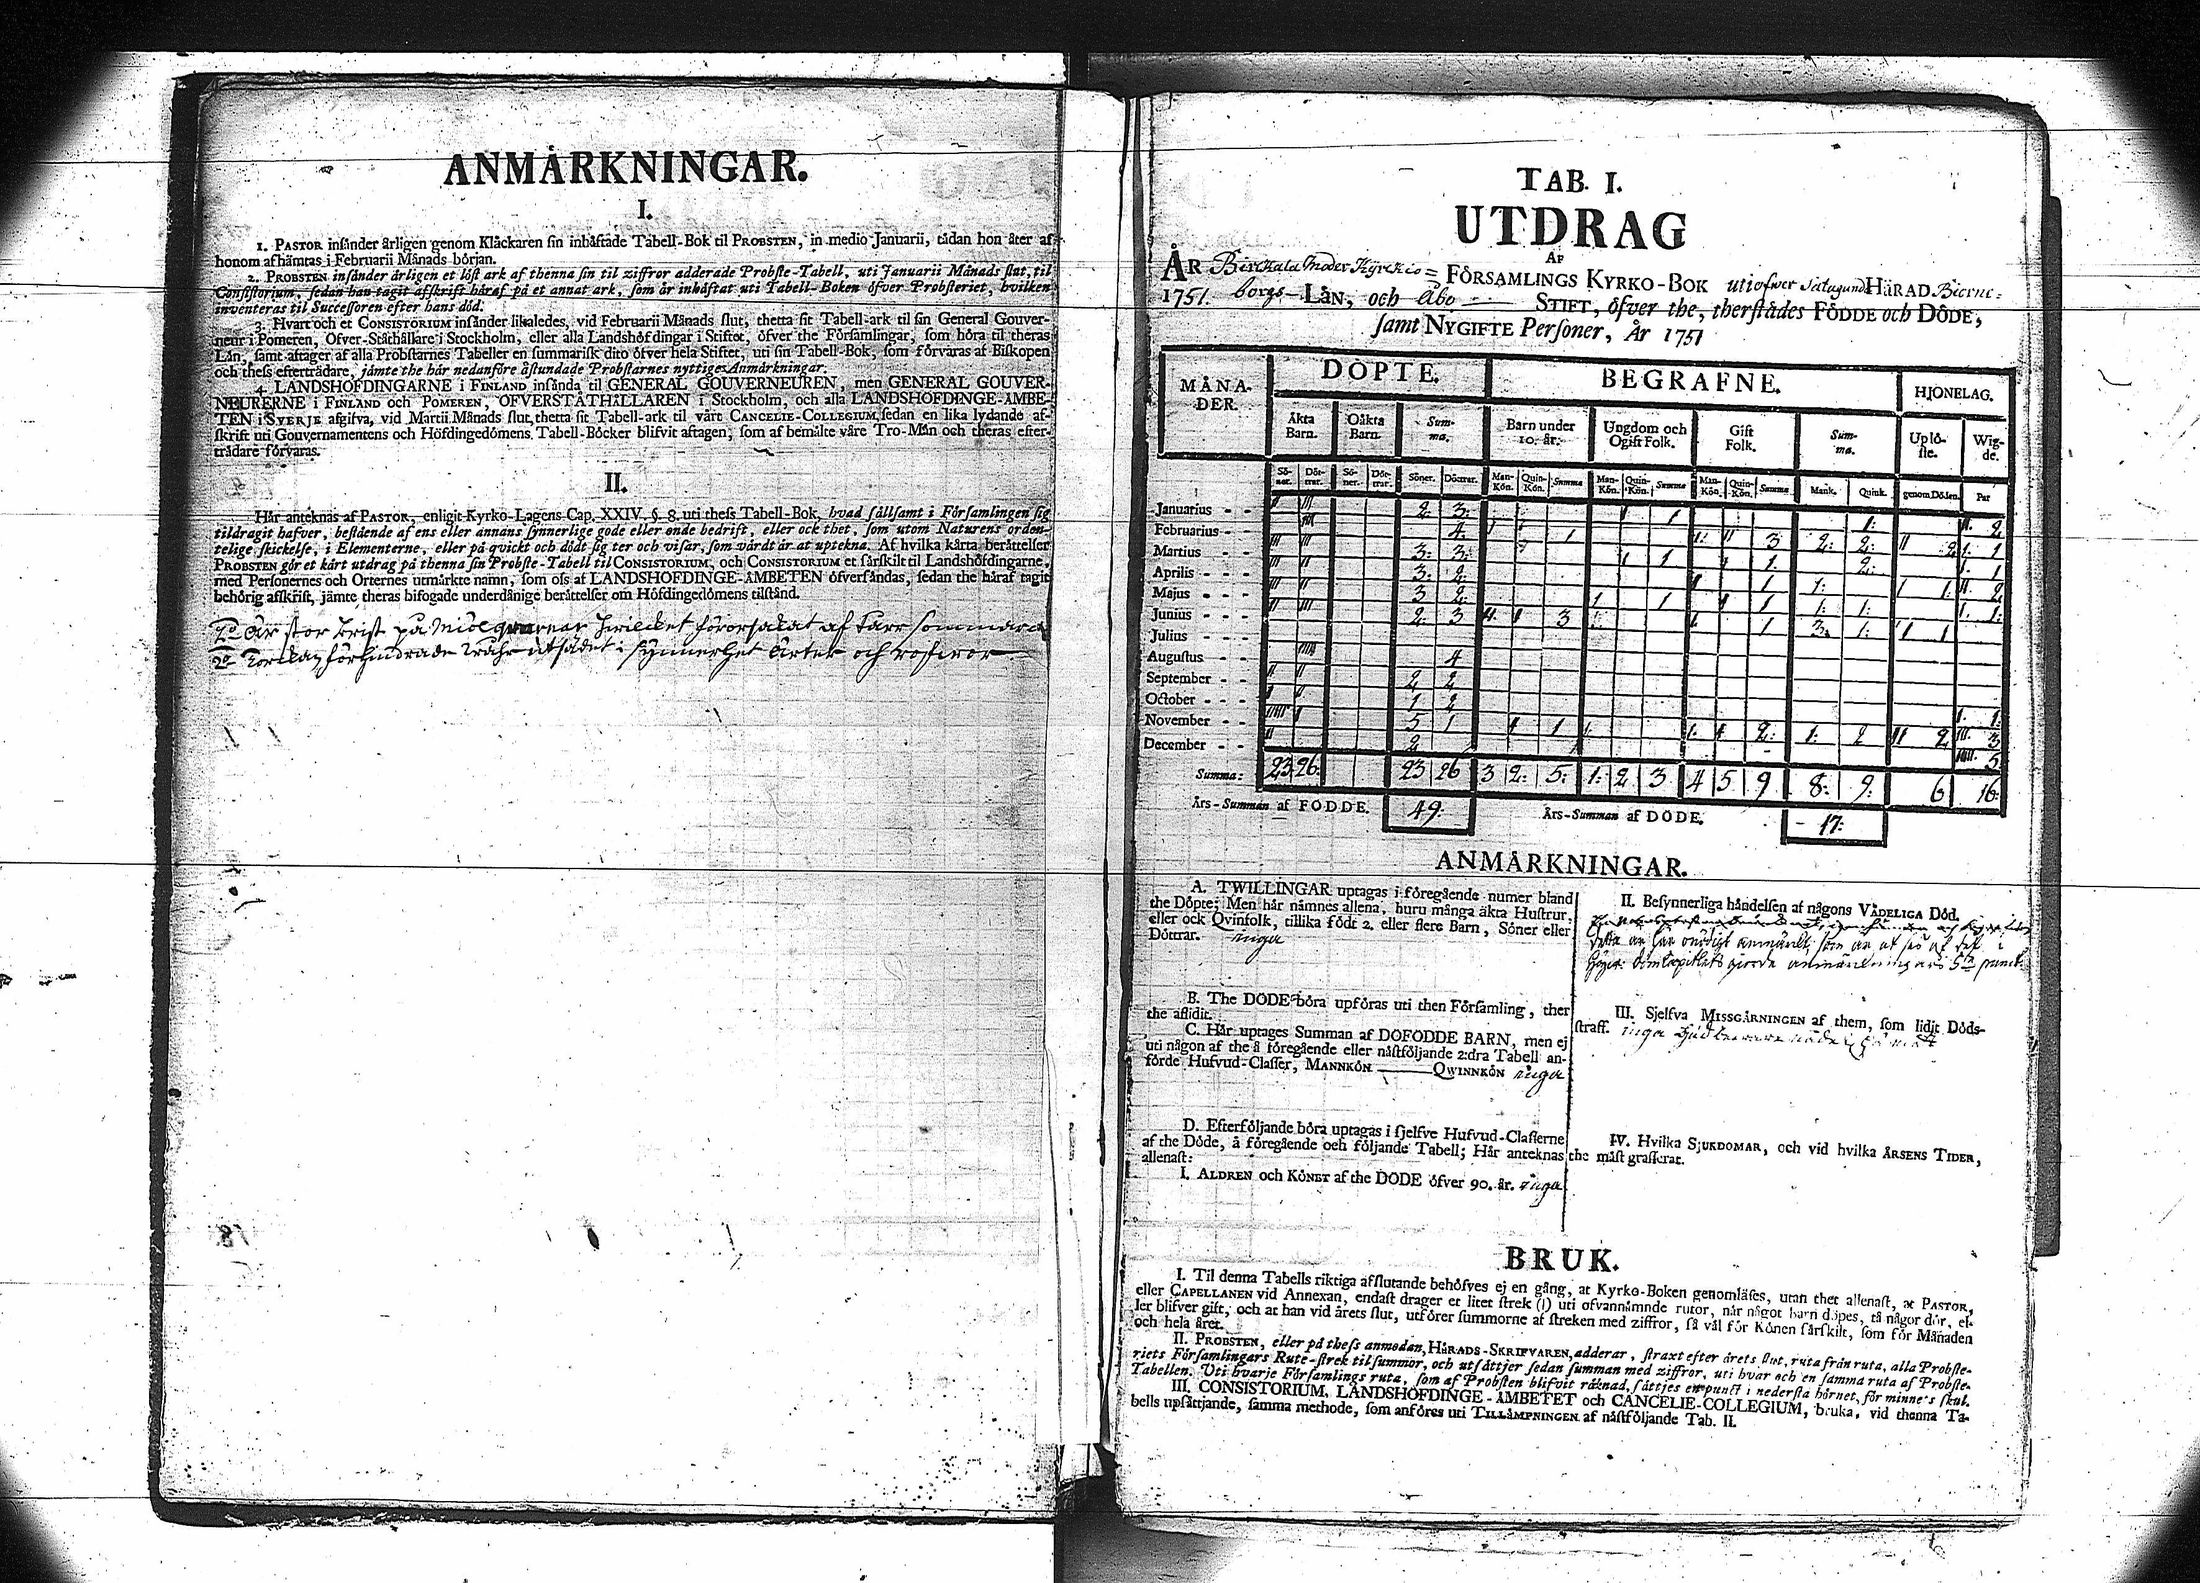 ANMÄRKNINGAR.
I.
1. PASTOR insånder årligen genom Klåckaren sin inbåstade Tabell-Bok til PROBSTEN, in medio Januarii, tådan hon åter af-
honom afhämtas i Februarii Månads början.
2. PROBSTEN insånder årligen et löst ark af thenna sin til ziffror adderade Probste-Tabell, uti Januarii Månads slut, til
Consistorium, sedan han tagit afskrift håraf på et annat ark, som år inhåftat uti Tabell-Boken öfver Probsteriet, hvilken
inventeras til Successoren efter hans död.
3. Hvart och et CONSISTORIUM insånder likaledes, vid Februarii Månads slut, thetta sit Tabell-ark til sin General Gouver-
neur i Pomeren, Öfver-Ståthållare i Stockholm, eller alla Landshöfdingar i Stiftet, öfver the Församlingar, som höra til theras
Lån, samt aftager af alla Probstarnes Tabeller en summarisk dito öfver hela Stiftet, uti sin Tabell-Bok, som förvaras af Biskopen
och thess efterträdare, jämte the hår nedanföre åstundade Probstarnes nyttiges Anmärkningar.
4. LANDSHÖFDINGARNE i FINLAND insånda til GENERAL GOUVERNEUREN, men GENERAL GOUVER-
NEURERNE i FINLAND och POMEREN, ÖFVERSTÅTHÅLLAREN i Stockholm, och alla LANDSHÖFDINGE-ÄMBE-
TEN i SVERJE afgifva, vid Martii Månads slut, thetta sit Tabell-ark til vårt CANCELIE-COLLEGIUM, sedan en lika lydande af-
skrift uti Gouvernamentens och Höfdingedömens Tabell-Böcker blifvit aftagen, som af bemälte våre Tro-Män och theras efter-
trädare förvaras.
II.
Hår anteknas af PASTOR, enligit Kyrko-Lagens Cap. XXIV. §. 8. uti thess Tabell-Bok, hvad sållsamt i Församlingen sig
tildragit hafver, bestående af ens eller annans synnerlige gode eller onde bedrift, eller ock thet, som utom Naturens orden-
telige skickelse, i Elementerne, eller på qvickt och dödt sig ter och visar, som vårdt år at uptekna. Af hvilka kårta berättelser
PROBSTEN gör et kårt utdrag på thenna sin Probste-Tabell til CONSISTORIUM, och CONSISTORIUM et sårskilt til Landshöfdingarne,
med Personernes och Orternes utmårkte namn, som oss af LANDSHÖFDINGE-ÄMBETEN öfversåndas, sedan the håraf tagit
behörig afskrift, jämte theras bifogade underdånige berättelser om Höfdingedömens tilstånd.
1o År stor brist på hwilcket förorsakat af torr sommar
2o Torckan förhindrade utsädet i synnerhet ärter och rofwor
TAB. I.
UTDRAG
AF
ÅR Birckala Moder Kyrckio = FÖRSAMLINGS KYRKO-BOK uti öfwer Satagund HÄRAD Biörne=
1751. borgs LÅN, och Åbo STIFT, öfver the, therstådes FÖDDE och DÖDE,
samt NYGIFTE Personer, År 1751
MÅNA-DER. DÖPTE. BEGRAFNE. HJONELAG.
Äkta Barn. Oäkta Barn. Summa. Barn under 10. år. Ungdom och Ogift Folk. Gift Folk. Summa. Uplö-ste. Wig-de.
Sö-ner. Döt-trar. Sö-ner. Döt-trar. Söner. Döttrar. Man-Kön. Quin-Kön. Summa Man-Kön. Quin-Kön. Summa Man-Kön. Quin-Kön. Summa Mank. Quink. genom Döden. Par
Januarius - - II III 2 3: 1 1 1: II. 2
Februarius - - IIII 4: 1 1 1: II 3 2: 2: II 2 1. 1
Martius - - III III 3: 3: 1 1 1 1. 2: 1. 1
Aprilis - - III II 3: 2: 1 1 1: 1 1: II. 2
Majus - - - III II 3 2: 1 1 1 1 1: 1: 1. 1:
Junius - - - II III 2: 3 II. 1 3 1. 1 3 1: 1 1
Julius - - -
Augustus - - IIII 4
September - - II II 2 2
October - - - I II 1 2 1. 1:
November - - IIIII I 5 1 1 1 1. 1. 1. 2: 1: 2 II 2 III. 3
December - - II 2 IIIII. 5
Summa: 23 26: 23 26 3 2: 5: 1: 2 3 4 5 9 8: 9: 6 16:
Års-Summan af FÖDDE. 49: Års-Summan af DÖDE. 17:
ANMÄRKNINGAR.
A. TWILLINGAR uptagas i föregående numer bland
the Döpte; Men hår nämnes allena, huru många äkta Hustrur,
eller ock Qvinfolk, tillika födt 2. eller flere Barn, Söner eller
Döttrar. inga
B. The DÖDE böra upföras uti then Församling, ther
the aflidit.
C. Hår uptages Summan af DÖFÖDDE BARN, men ej
uti någon af the å föregående eller nästföljande 2:dra Tabell an-
förde Hufvud-Classer, MANNKÖN ——— QWINNKÖN inga
D. Efterföljande böra uptagas i sjelfve Hufvud-Classerne
af the Döde, å föregående och följande Tabell; Hår anteknas
allenast:
I. ÅLDREN och KÖNET af the DÖDE öfver 90. år. inga
II. Besynnerliga håndelsen af någons VÅDELIGA Död.
III. Sjelfva MISSGÄRNINGEN af them, som lidit Döds-
straff. inga
IV. Hvilka SJUKDOMAR, och vid hvilka ÅRSENS TIDER,
the måst grasserat.
BRUK.
I. Til denna Tabells riktiga afslutande behöfves ej en gång, at Kyrko-Boken genomläses, utan thet allenast, at PASTOR,
eller CAPELLANEN vid Annexan, endast drager et litet strek (I) uti ofvannåmnde rutor, når något barn döpes, tå någor dör, el-
ler blifver gift, och at han vid årets slut, utförer summorne af streken med ziffror, så väl för Könen sårskilt, som för Månaden
och hela året.
II. PROBSTEN, eller på thess anmodan, HÅRADS-SKRIFVAREN, adderar, straxt efter årets slut, ruta från ruta, alla Probste-
riets Församlingars Rute-strek til summor, och utsåttjer sedan summan med ziffror, uti hvar och en samma ruta af Probste-
Tabellen. Uti hvarje Församlings ruta, som af Probsten blifvit råknad, såttjes en punct i nedersta hörnet, för minne's skul.
III. CONSISTORIUM, LANDSHÖFDINGE-ÄMBETET och CANCELIE-COLLEGIUM, bruka, vid thenna Ta-
bells upsåttjande, samma methode, som anföres uti TILLÄMPNINGEN af nåstföljande Tab. II.